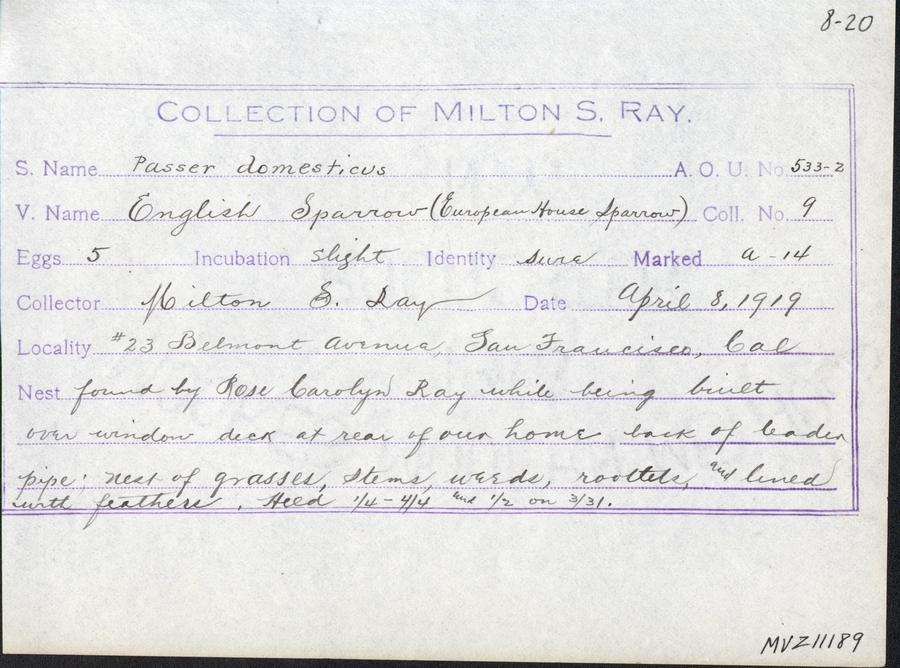 8-20
COLLECTION OF MILTON S. RAY.
S. Name Passer domesticus A. O. U. No. 533-2
V. Name English Sparrow (European House Sparrow) Coll. No. 9
Eggs 5 Incubation slight Identity sure Marked a-14
Collector Milton S. Ray Date April 8, 1919
Locality #23 Belmont Avenue, San Francisco, Cal
Nest found by Rose Carolyn Ray while being built
over window deck at rear of our home back of leader
pipe; nest of grasses, stems, weeds, rootlets, and lined
with feathers. 1/4 - 4/4 and 1/2 on 3/31.
MVZ11189